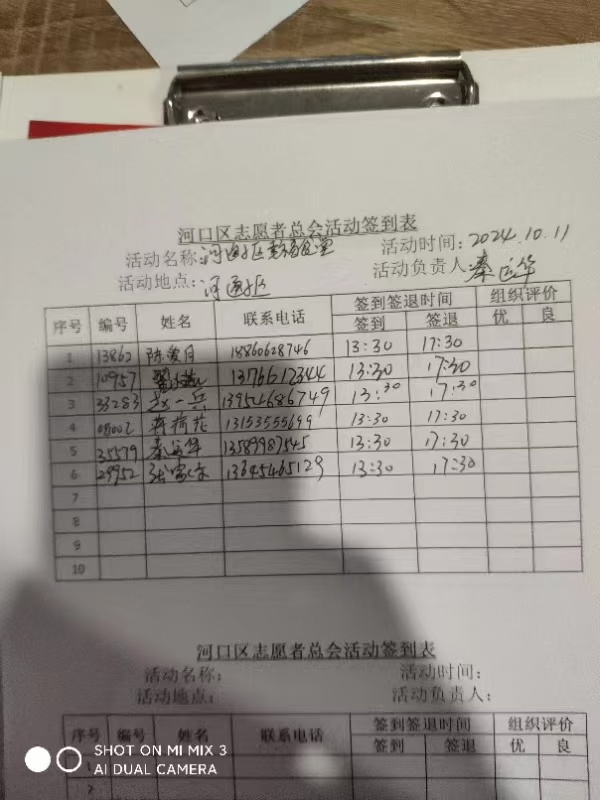 河口区志愿者总会活动签到表
活动名称: 河 区 活动时间: 2024.10.11
活动地点: 河 区 活动负责人 秦 华
序号 编号 姓名 联系电话 签到签退时间 组织评价
签到 签退 优 良
1 13862 陈爱月 18860628746 13:30 17:30
2 10957 13766612344 13:30 17:30
3 33283 赵一兵 13954686749 13:30 17:30
4 蒋荷花 13153555699 13:30 17:30
5 35579 秦 华 13589987545 13:30 17:30
6 29952 张 13345465129 13:30 17:30
7
8
9
10
河口区志愿者总会活动签到表
活动名称: 活动时间:
活动地点: 活动负责人:
序号 编号 姓名 联系电话 签到签退时间 组织评价
签到 签退 优 良
1
2
SHOT ON MI MIX 3
AI DUAL CAMERA